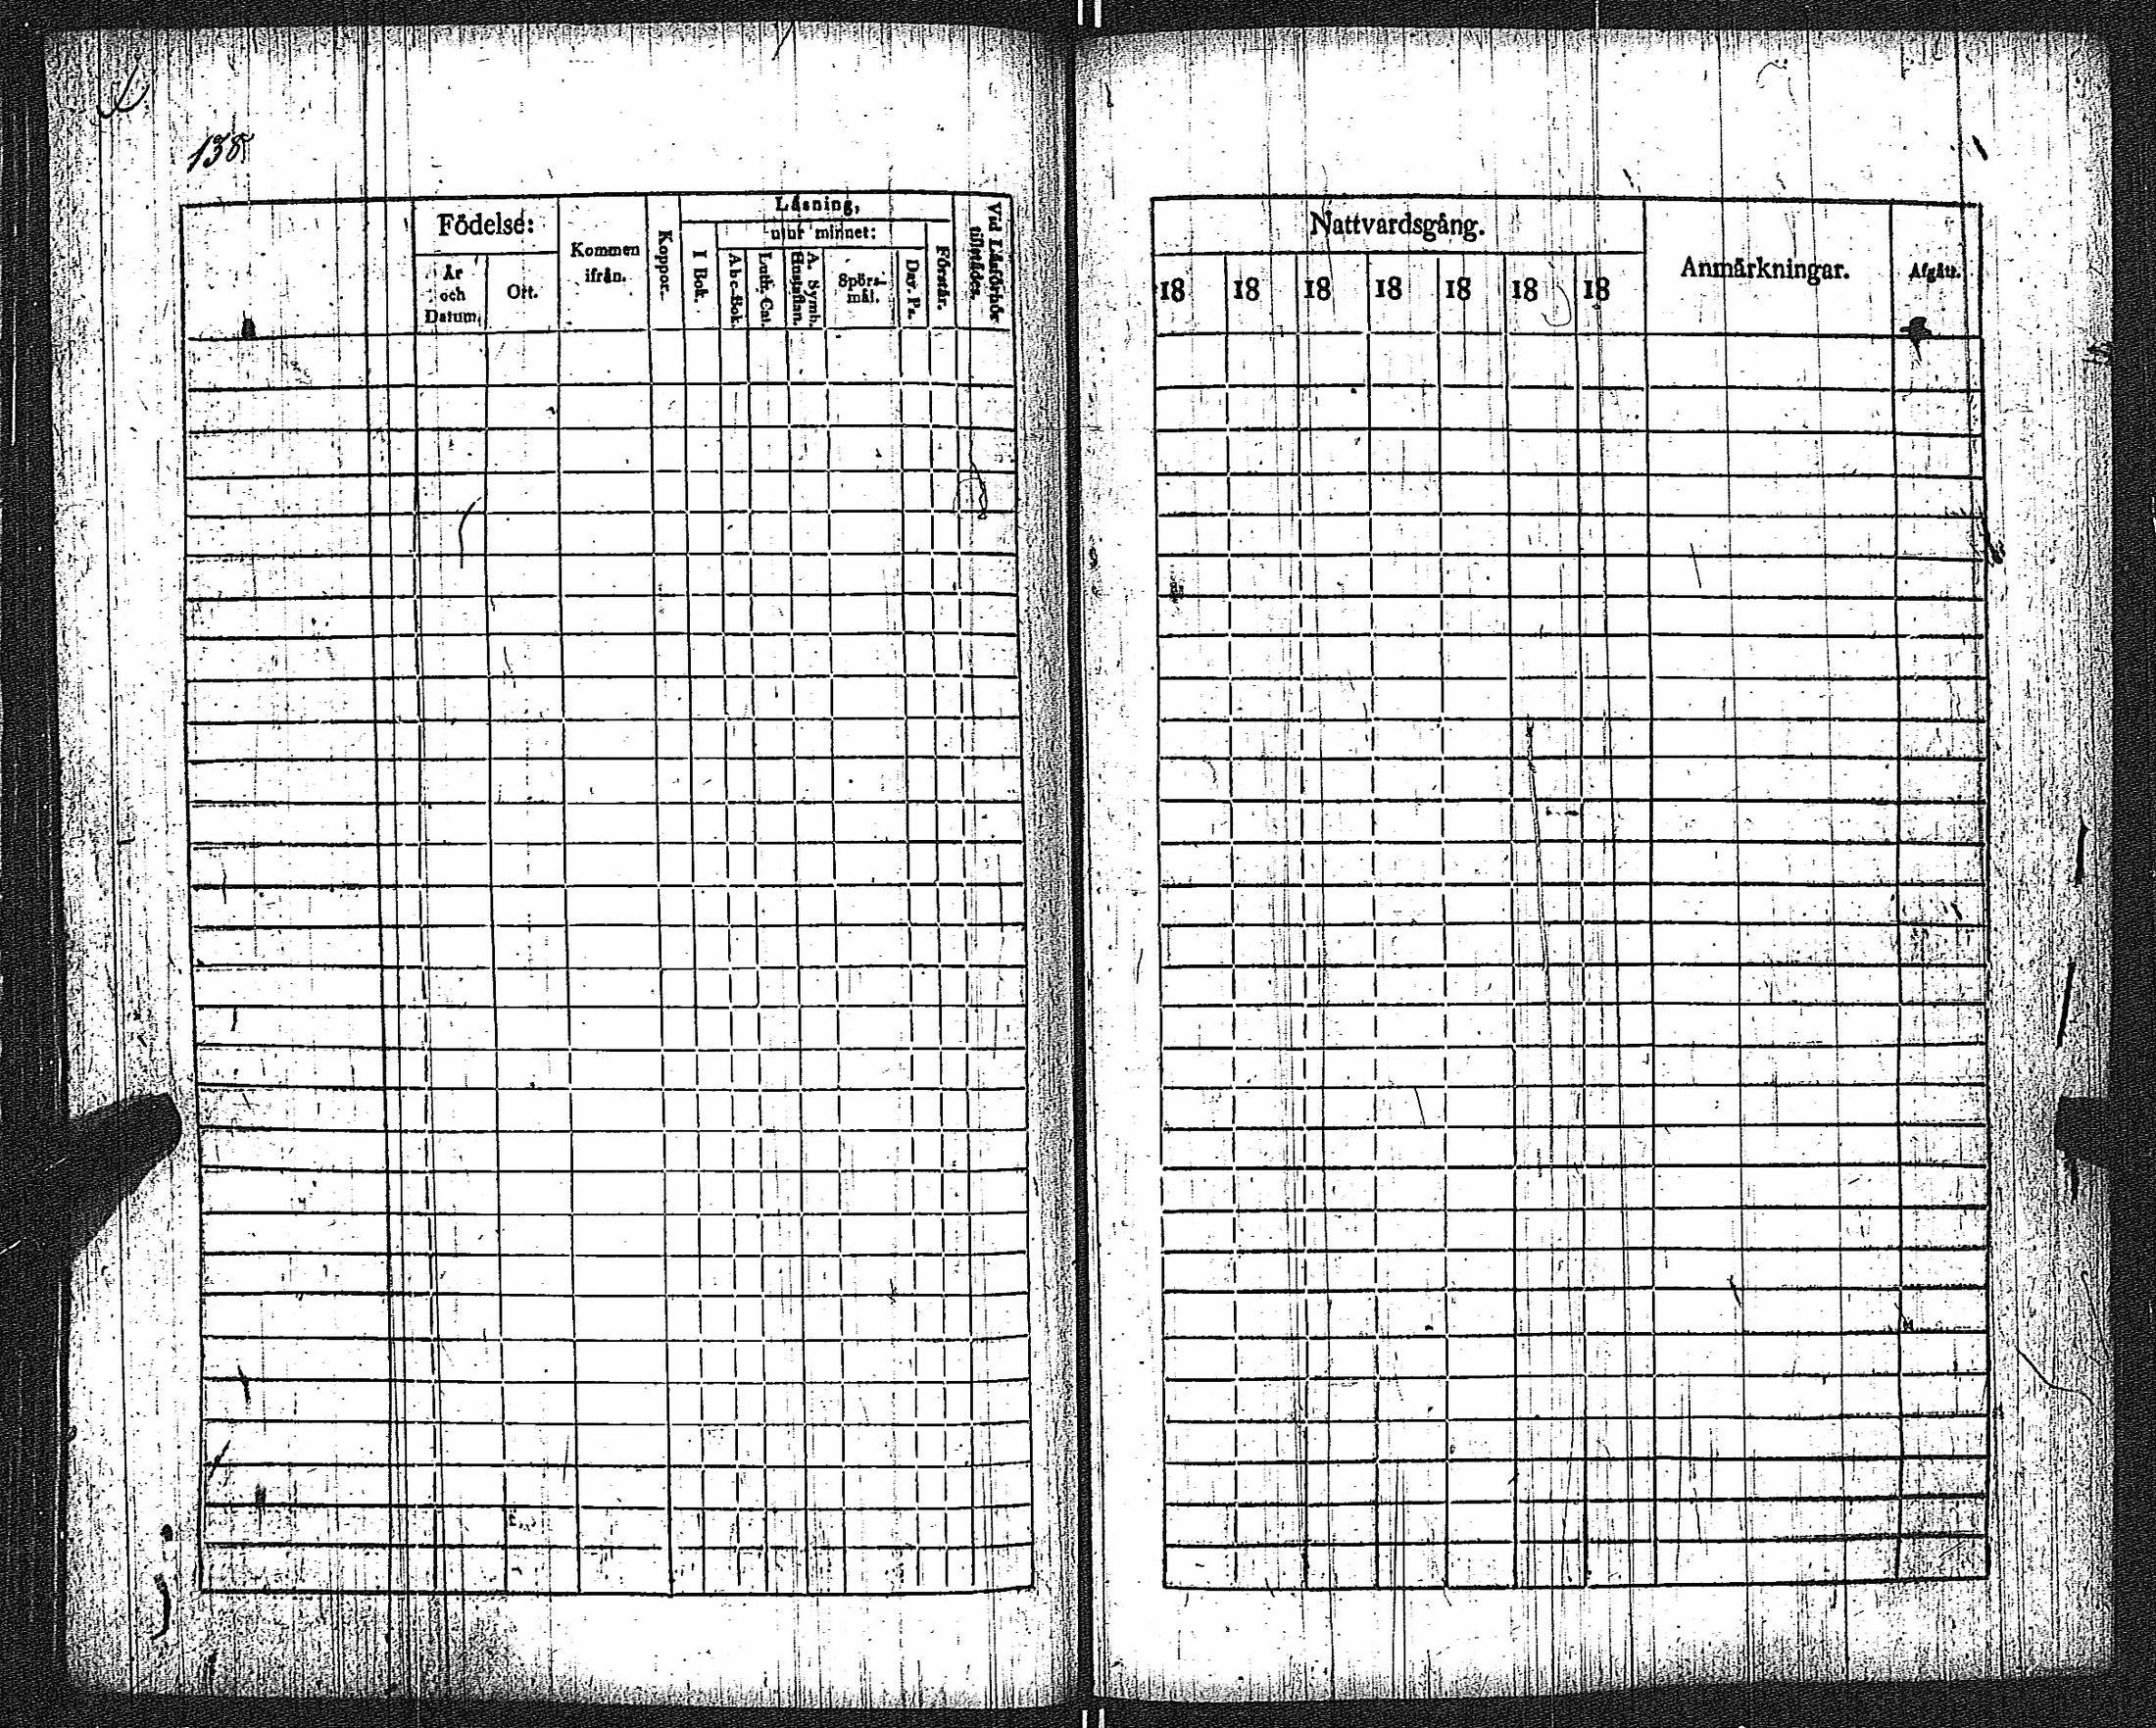 138
Födelse:
År och Datum.
Ort.
Kommen ifrån.
Koppor.
Läsning,
I Bok.
utur minnet:
A b c-Bok.
Luth. Cat.
A. Symb. Hustaflan.
Spörs-mål.
Dav. Ps.
Förstår.
Vid Läsförhör tillstädes.
Nattvardsgång.
18 18 18 18 18 18 18
Anmärkningar.
Afgått.